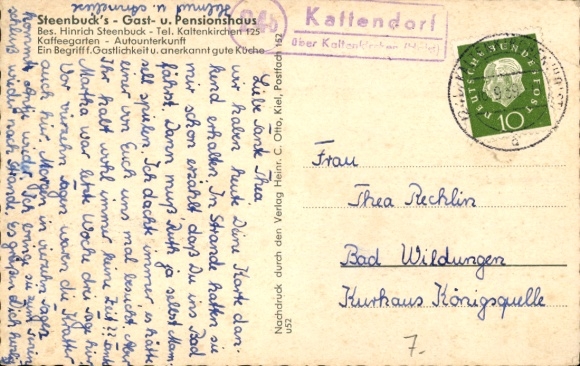 Steenbuck's - Gast- u. Pensionshaus
Bes. Hinrich Steenbuck - Tel. Kaltenkirchen 125
Kaffeegarten - Autounterkunft
Ein Begriff f. Gastlichkeit u. anerkannt gute Küche
Kattendorf
über Kaltenkirchen (Holst)
DEUTSCHE BUNDESPOST
10
Liebe Tante Thea
wir haben heute Deine Karte dan-
kend erhalten. In Strande hatten sie
mir schon erzählt daß Du ins Bad
fährst. Dann muß Ruth ja selbst Mam-
sell spielen. Ich dachte immer es hätte
einer von Euch uns mal besucht. Aber
Ihr habt wohl immer keine Zeit??
Martha war letzte Woche drei Tage hier
Vor vierzehn Tagen waren die
auch hier. Morgen in vierzehn Tagen
kommt Antje wieder. Ich bringe sie zum
wieder nach Strande. Es grüßen Dich
Helma u.
Nachdruck durch den Verlag Heinr. C. Otto, Kiel, Postfach 162
U52
Frau
Thea Rechlin
Bad Wildungen
Kurhaus Königsquelle
7.